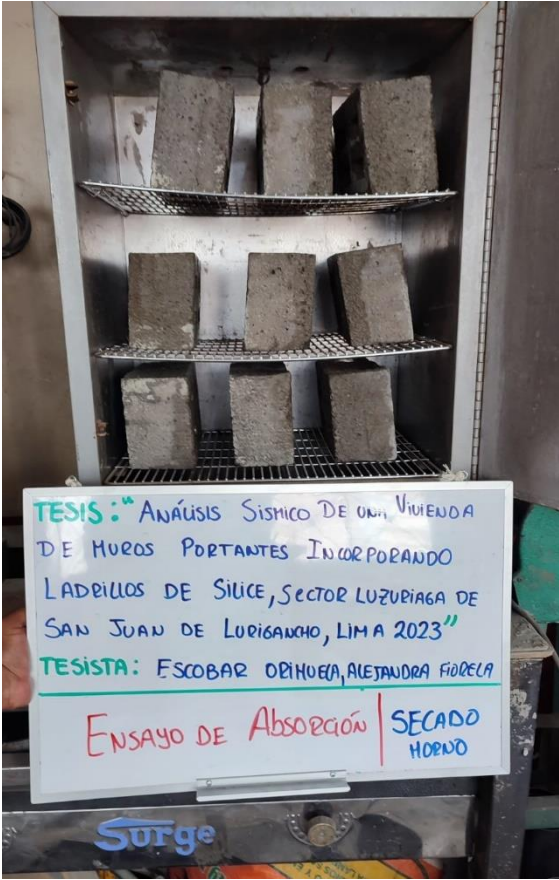 TESIS: "ANÁLISIS SISMICO DE UNA VIVIENDA
DE MUROS PORTANTES INCORPORANDO
LADRILLOS DE SILICE, SECTOR LUZURIAGA DE
SAN JUAN DE LURIGANCHO, LIMA 2023"
TESISTA: ESCOBAR ORIHUELA, ALEJANDRA FIORELA
ENSAYO DE ABSORCIÓN | SECADO
HORNO
Surge